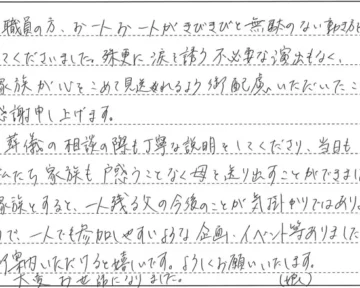 職員の方、お一人お一人がきびきびと無駄のない動き方
てくださいました。殊更に涙を誘う不必要な演出もなく、
家族が心をこめて見送れるよう御配慮いただいたこ
感謝申し上げます。
葬儀の相談の際も丁寧な説明をしてくださり、当日も
私たち家族も戸惑うことなく母を送り出すことができまし
家族とすると、一人残る父の今後のことが気掛かりではあり
で、一人でも参加しやすいような企画、イベント等ありました
案内いただけると嬉しいです。よろしくお願いいたします。
大変お世話になりました。 (娘)